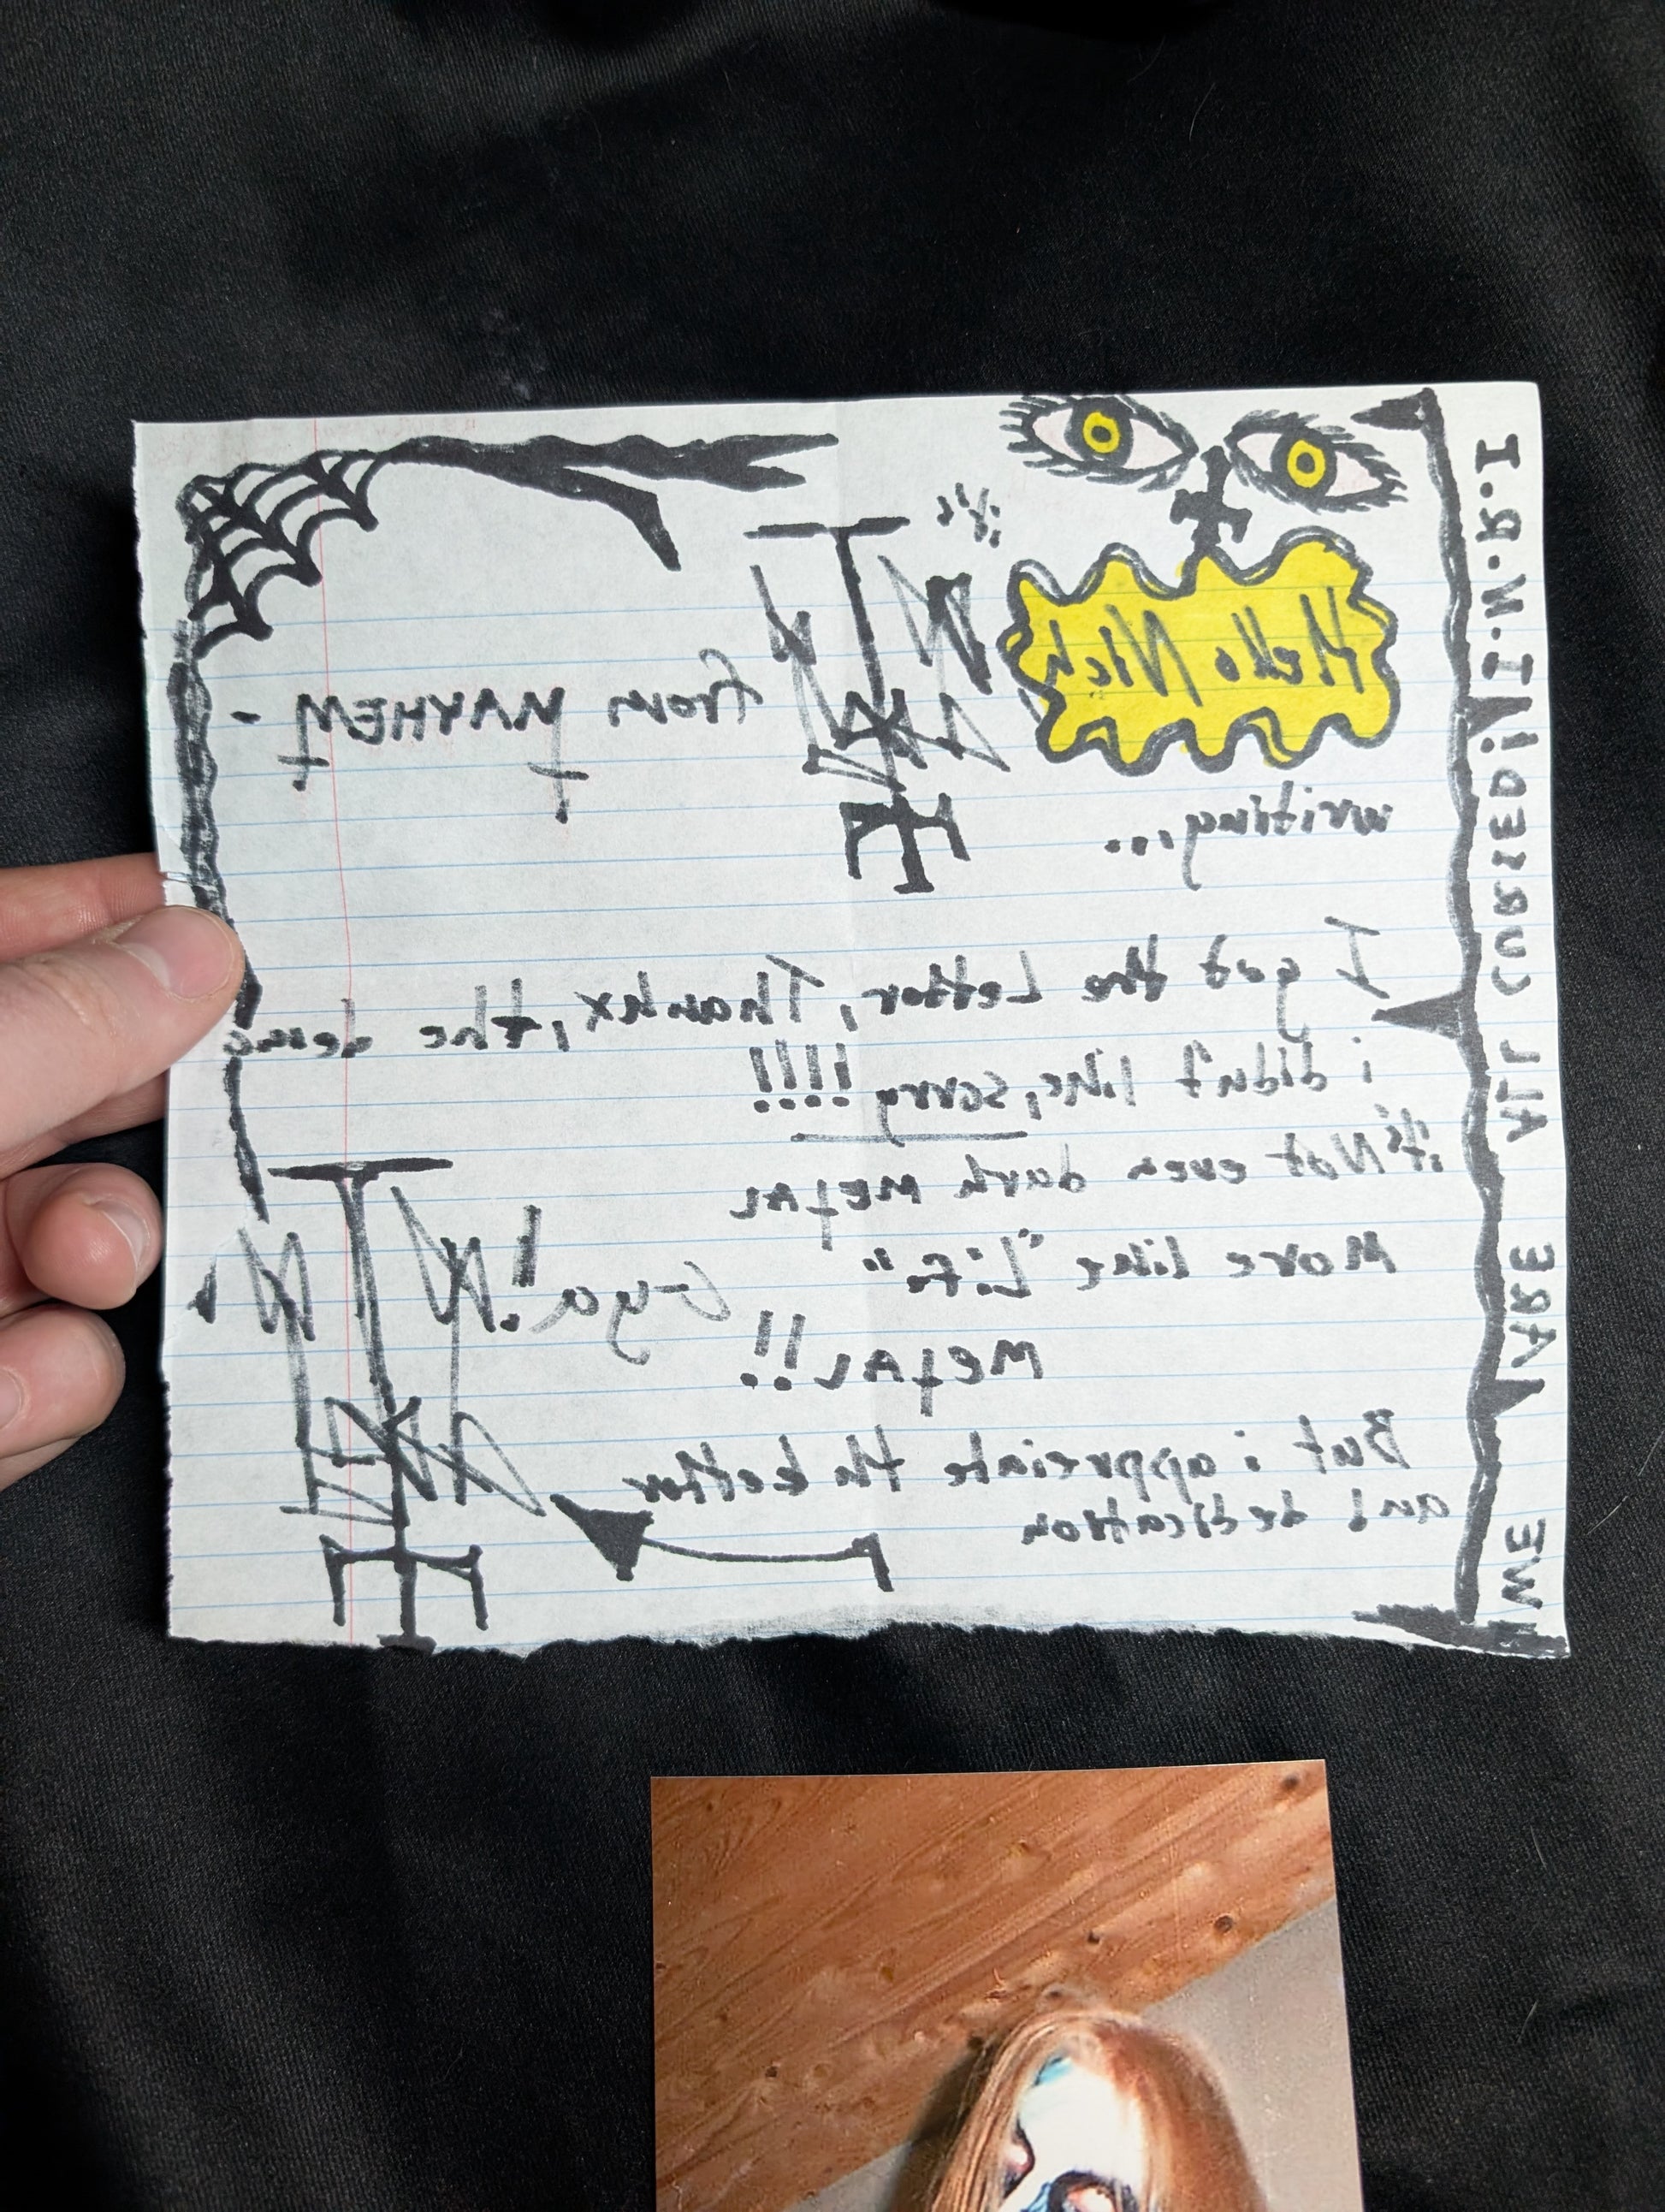 Hello Nick
it's
from MAYHEM -
writing...
I got the Letter, Thanhx, the demo
i didn't like, sorry !!!!
it's Not even dark METAL
More like "Life"
METAL!!
C-ya!
But i appreciate the Letter
and dedication
WE ARE ALL CURSED! I.N.R.I